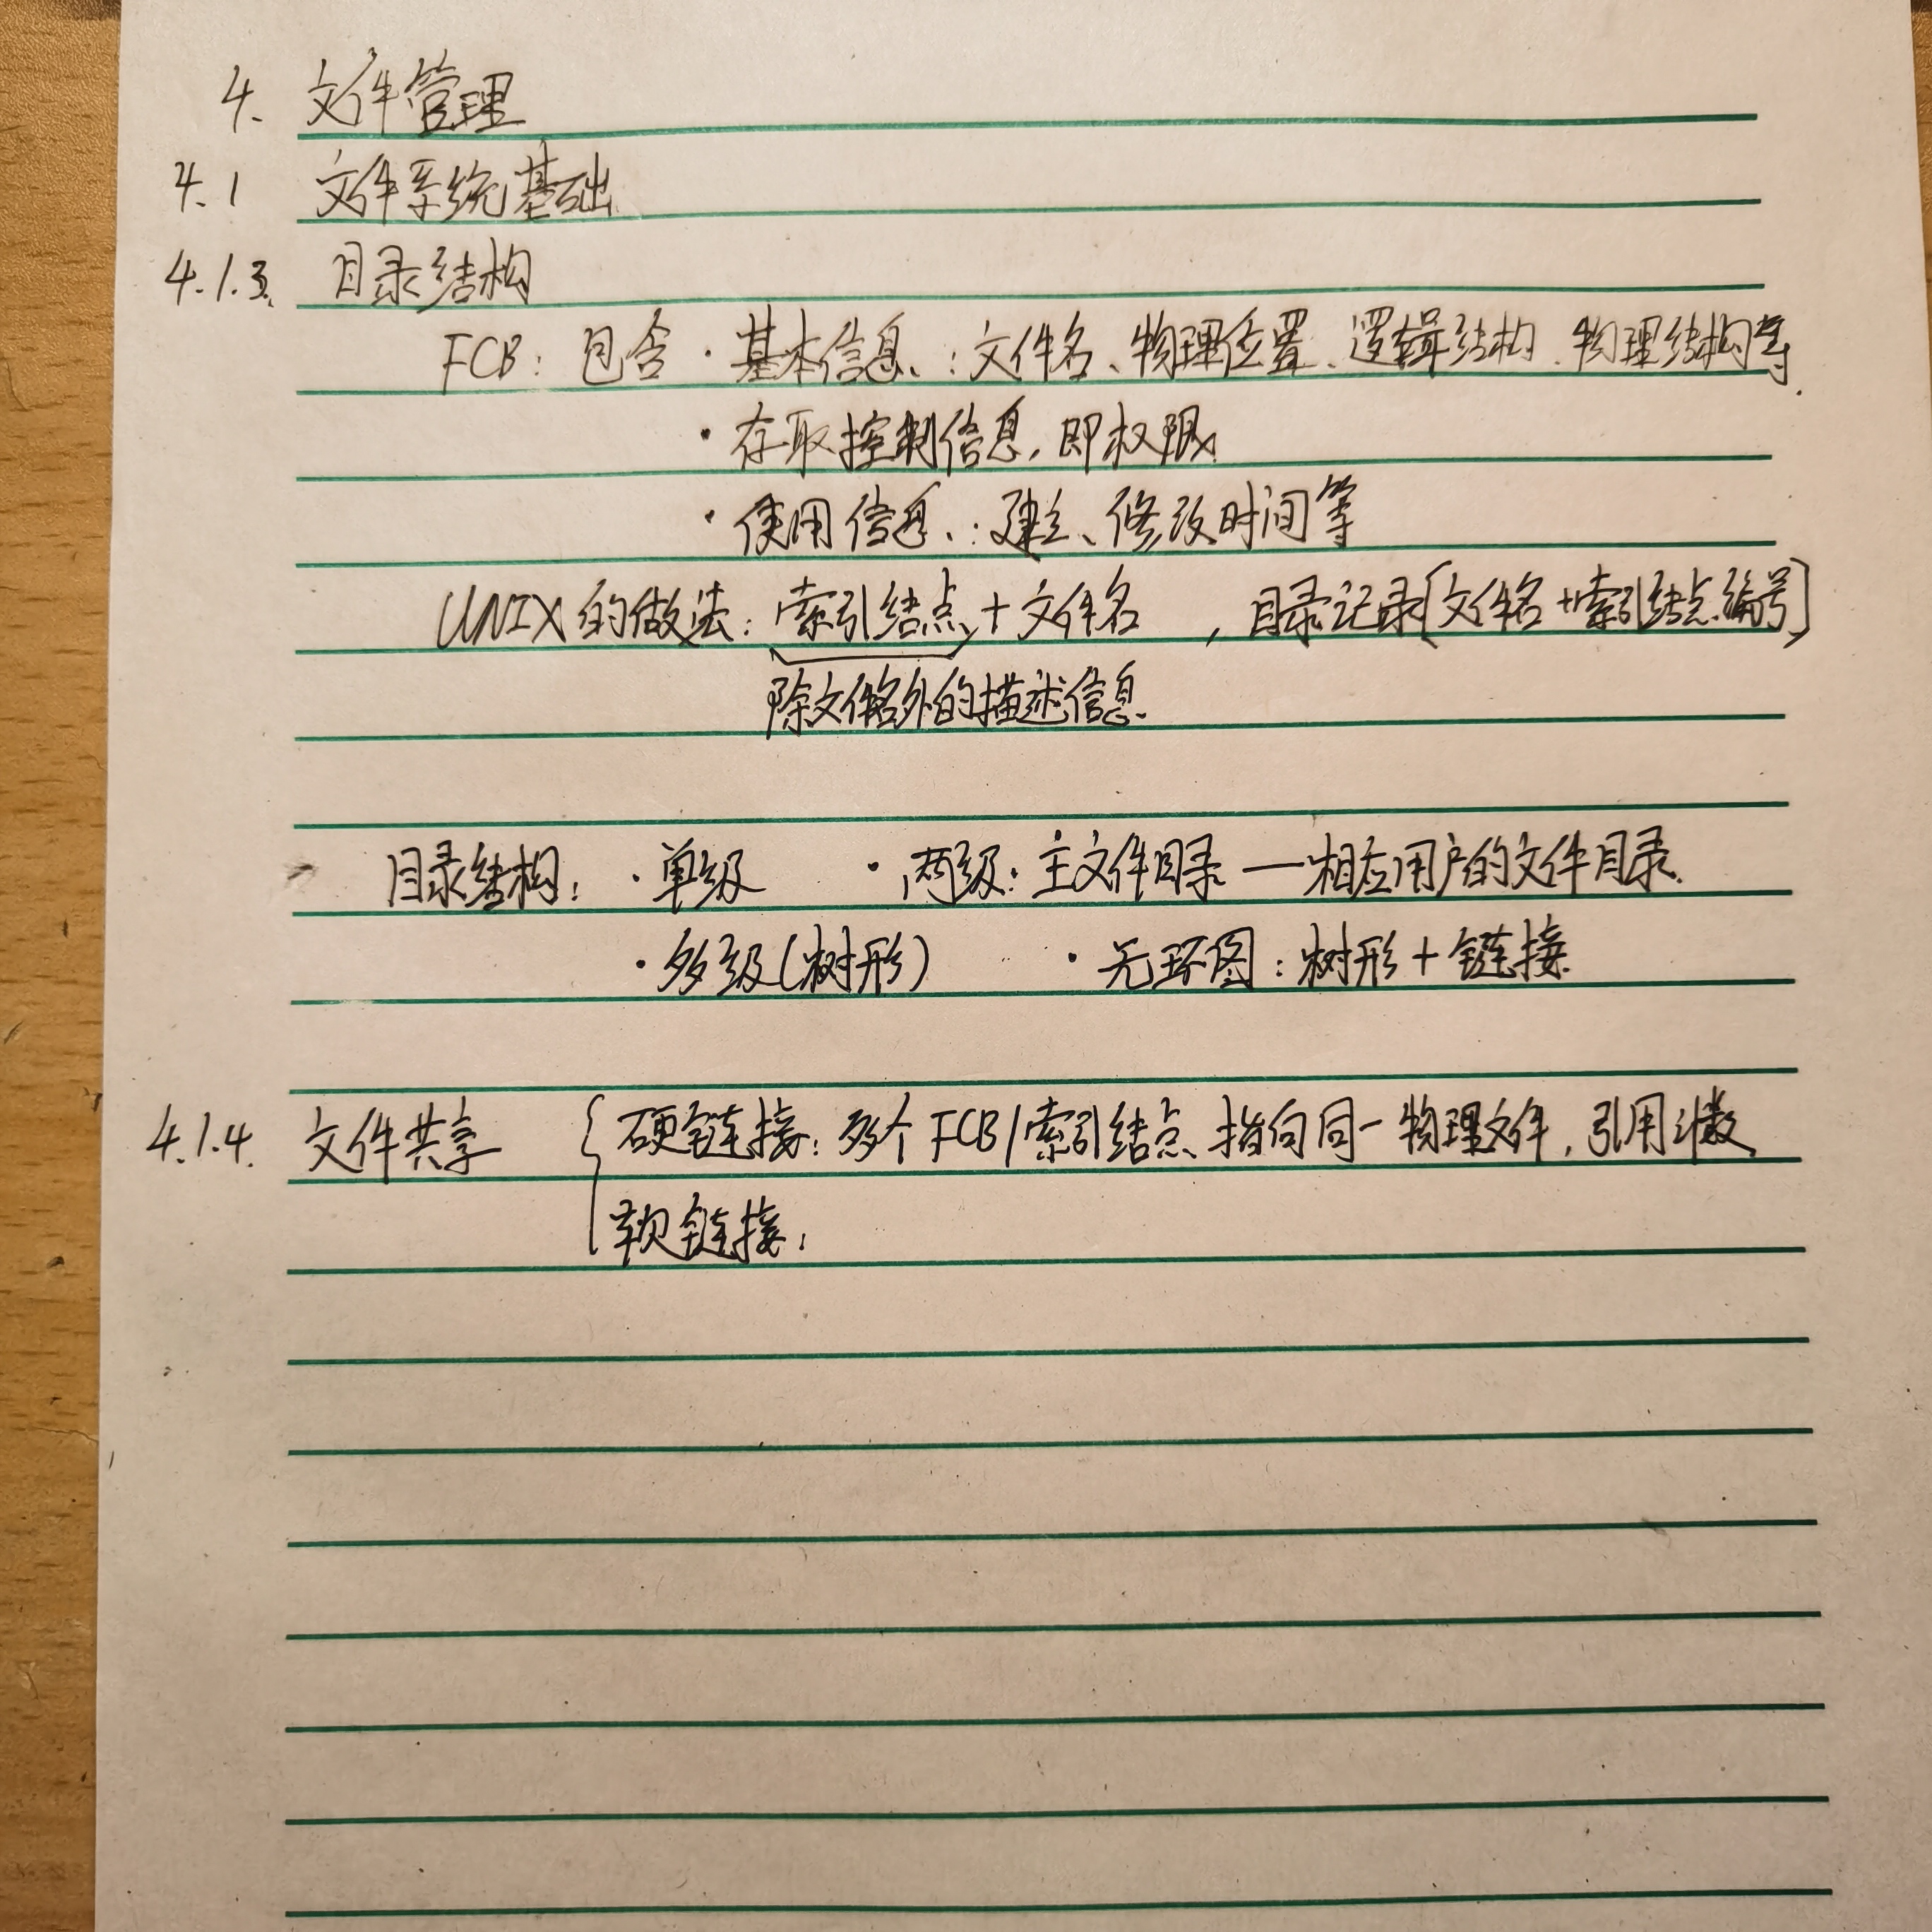 4. 文件管理
4.1 文件系统基础
4.1.3. 目录结构
FCB: 包含 · 基本信息: 文件名、物理位置、逻辑结构、物理结构等.
· 存取控制信息, 即权限
· 使用信息: 建立、修改时间等
UNIX的做法: 索引结点 + 文件名 , 目录记录[文件名+索引结点编号]
除文件名外的描述信息
目录结构: · 单级 · 两级: 主文件目录 — 相应用户的文件目录.
· 多级(树形) · 无环图: 树形 + 链接
4.1.4. 文件共享 { 硬链接: 多个FCB/索引结点 指向同一物理文件, 引用计数
软链接: